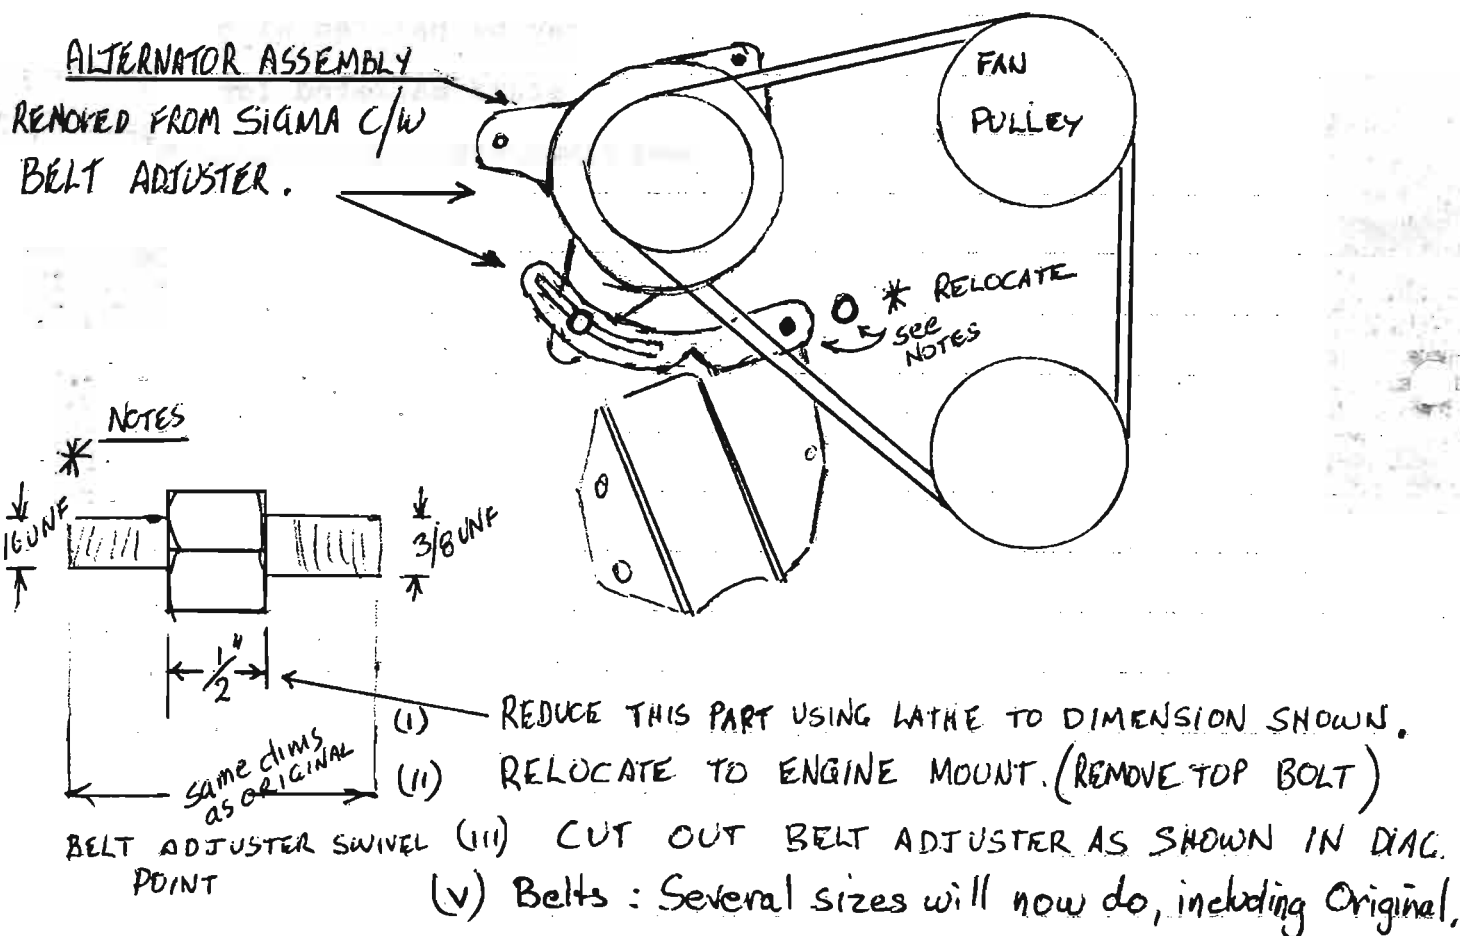 ALTERNATOR ASSEMBLY
REMOVED FROM SIGMA C/W
BELT ADJUSTER.
FAN
PULLEY
* RELOCATE
see
NOTES
NOTES
*
16 UNF
3/8 UNF
1/2"
same dims
as ORIGINAL
BELT ADJUSTER SWIVEL
POINT
(I) REDUCE THIS PART USING LATHE TO DIMENSION SHOWN.
(II) RELOCATE TO ENGINE MOUNT. (REMOVE TOP BOLT)
(III) CUT OUT BELT ADJUSTER AS SHOWN IN DIAG.
(V) Belts : Several sizes will now do, including Original.